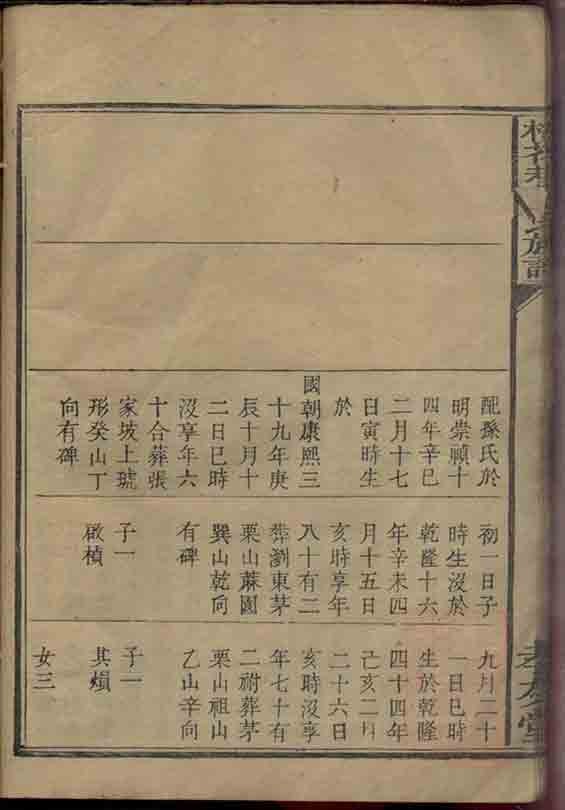 氏族譜
孝友堂
配孫氏於
明崇禎十
四年辛巳
二月十七
日寅時生
於
國朝康熙三
十九年庚
辰十月十
二日巳時
沒享年六
十合葬張
家坡上琥
形癸山丁
向有碑
初一日子
時生沒於
乾隆十六
年辛未四
月十五日
亥時享年
八十有二
葬瀏東茅
栗山蔴園
巽山乾向
有碑
子一
啟楨
九月二十
一日巳時
生於乾隆
四十四年
己亥二月
二十六日
亥時沒享
年七十有
二祔葬茅
栗山祖山
乙山辛向
子一
其熉
女三